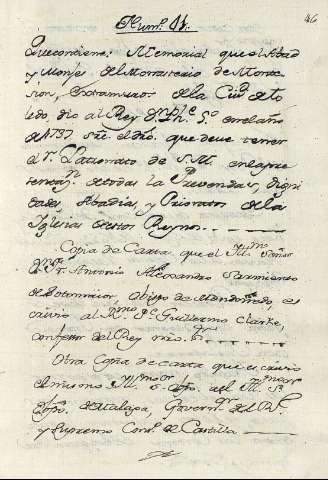 46
Num.º 11.
Que contiene: Memorial que el Abad
y Monje del Monasterio de Monte-
sion, extramuros de la Ciud. de To-
ledo, dio al Rey Dn. Phe. 5º en el año
de 1737 sre. el dro. que deve tener
el Patronato de S. M. en la pre
sentazn. de todas las Prevendas, Digni
dades, Abadias, y Prioratos de la
Iglesias de estos Reynos.
Copia de Carta que el Ill.mo Señor
Dn. Fr. Antonio Alexandro Sarmiento
de Sotomaior, Obispo de Mondoñedo, es
crivio al R.mo Pe. Guillermo Clarke,
confesor del Rey nro. Sr.
Otra Copia de carta que escrivio
el mismo Ill.mo Sr. Obpo. al Ill.mo Sr.
Obpo. de Malaga, Governr. del Rl.
y Supremo Conso. de Castilla